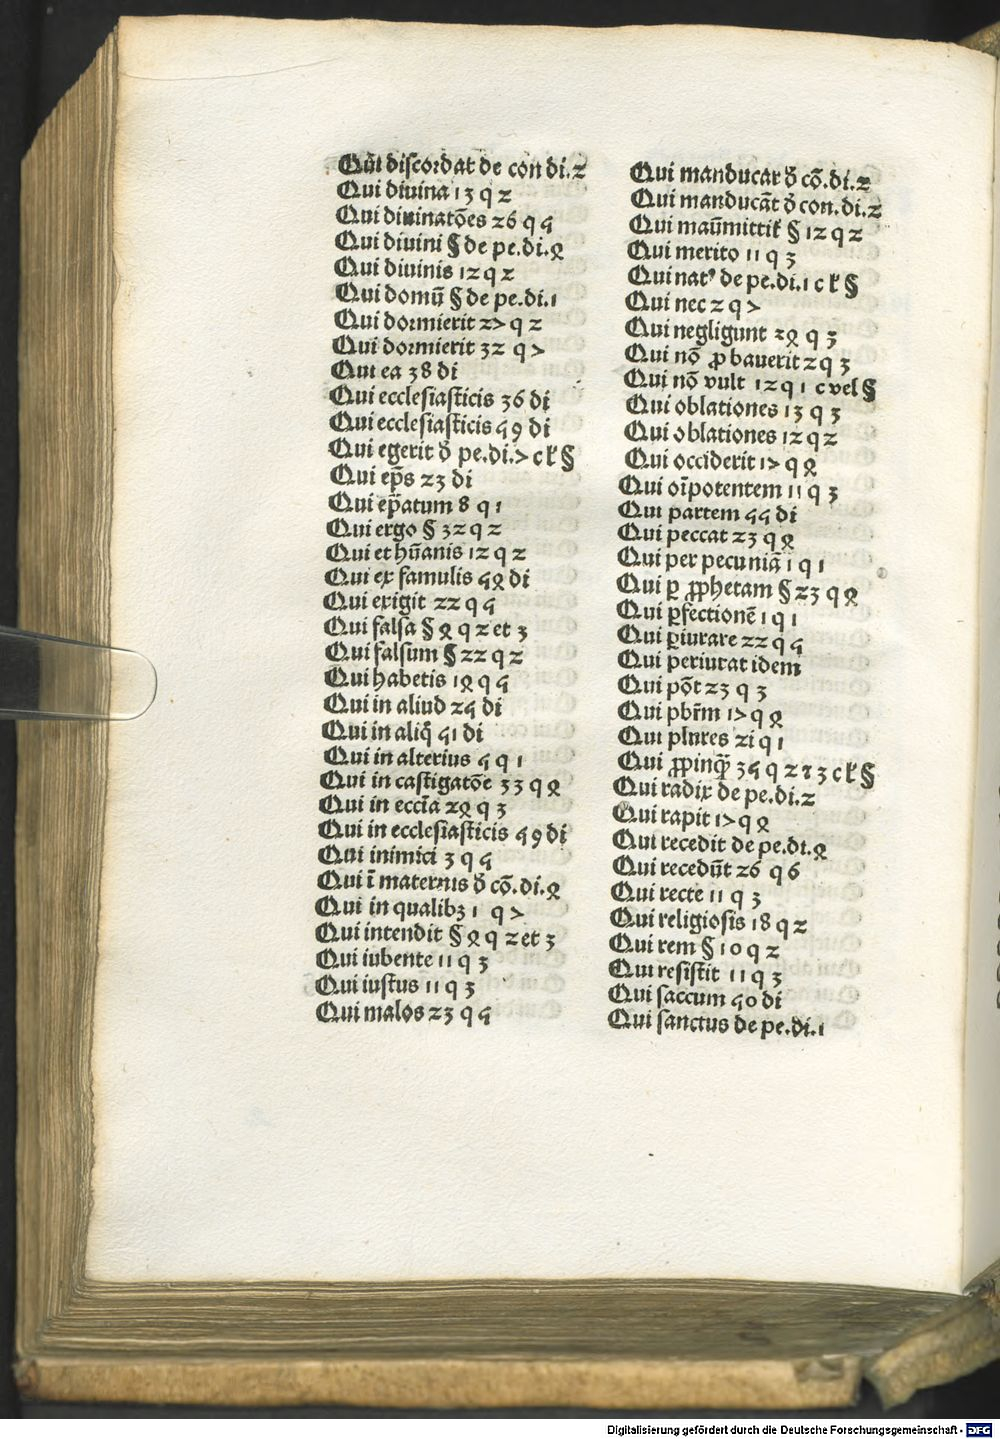 Qui discordat de con di.2
Qui diuina 13 q 2
Qui diuinatões 26 q 4
Qui diuini § de pe.di.5
Qui diuinis 12 q 2
Qui domũ § de pe.di.1
Qui dormierit 27 q 2
Qui dormierit 32 q 7
Qui ea 38 di
Qui ecclesiasticis 36 di
Qui ecclesiasticis 49 di
Qui egerit đ pe.di.7 c ł §
Qui ep̃s 23 di
Qui ep̃atum 8 q 1
Qui ergo § 32 q 2
Qui et hũanis 12 q 2
Qui ex famulis 45 di
Qui exigit 22 q 4
Qui falsa § 5 q 2 et 3
Qui falsum § 22 q 2
Qui habetis 15 q 4
Qui in aliud 24 di
Qui in aliq̃ 41 di
Qui in alterius 4 q 1
Qui in castigatõe 33 q 5
Qui in eccĩa 25 q 3
Qui in ecclesiasticis 49 di
Qui inimici 3 q 4
Qui ĩ maternis đ cõ.di.5
Qui in qualibꝫ 1 q 7
Qui intendit § 5 q 2 et 3
Qui iubente 11 q 3
Qui iustus 11 q 3
Qui malos 23 q 4
Qui manducat đ cõ.di.2
Qui manducãt đ con.di.2
Qui maũmittit̃ § 12 q 2
Qui merito 11 q 3
Qui natꝰ de pe.di.1 c ł §
Qui nec 2 q 7
Qui negligunt 25 q 3
Qui nõ ꝓbauerit 2 q 3
Qui nõ vult 12 q 1 c vel §
Qui oblationes 13 q 3
Qui oblationes 12 q 2
Qui occiderit 17 q 5
Qui oĩpotentem 11 q 3
Qui partem 44 di
Qui peccat 23 q 5
Qui per pecuniã 1 q 1
Qui ꝑ ꝓphetam § 23 q 5
Qui ꝑfectionẽ 1 q 1
Qui ꝑiurare 22 q 4
Qui periurat idem
Qui põt 23 q 3
Qui pbr̃m 17 q 5
Qui plures 21 q 1
Qui ꝓpinq̃ꝝ 34 q 2 ⁊ 3 c ł §
Qui radix de pe.di.2
Qui rapit 17 q 5
Qui recedit de pe.di.5
Qui recedũt 26 q 6
Qui recte 11 q 3
Qui religiosis 18 q 2
Qui rem § 10 q 2
Qui resistit 11 q 3
Qui saccum 40 di
Qui sanctus de pe.di.1
Digitalisierung gefördert durch die Deutsche Forschungsgemeinschaft - DFG